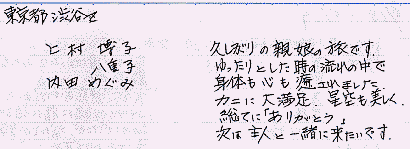 東京都渋谷区
上村 博子
八重子
内田 めぐみ
久しぶりの親娘の旅です。
ゆったりとした時の流れの中で
身体も心も癒されました。
カニに大満足、星空も美しく、
総てに「ありがとう」
次は主人と一緒に来たいです。